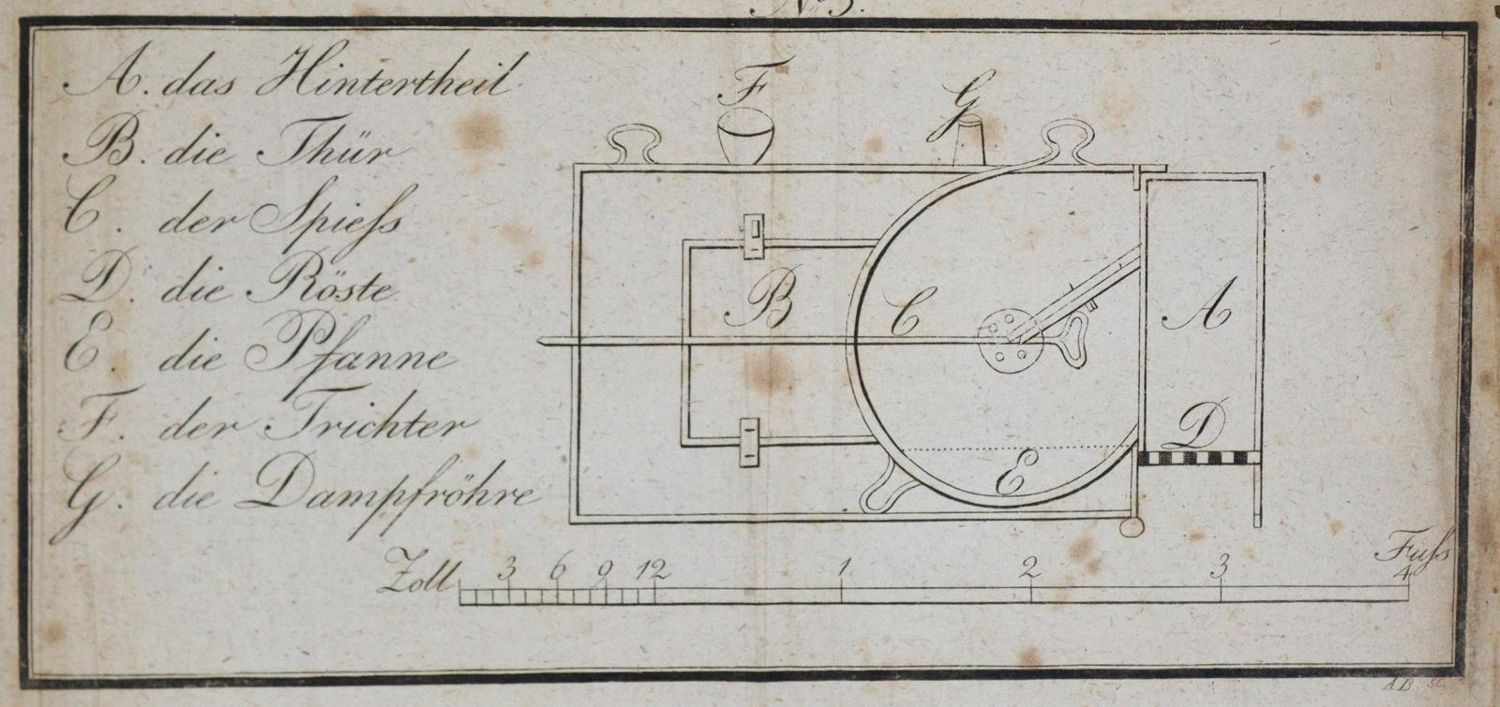 No 3.
A. das Hintertheil
B. die Thür
C. der Spieſs
D. die Röste
E. die Pfanne
F. der Trichter
G. die Dampfröhre
F
G
B
C
A
D
E
Zoll 3 6 9 12 1 2 3 4 Fuſs
A.B. sc.